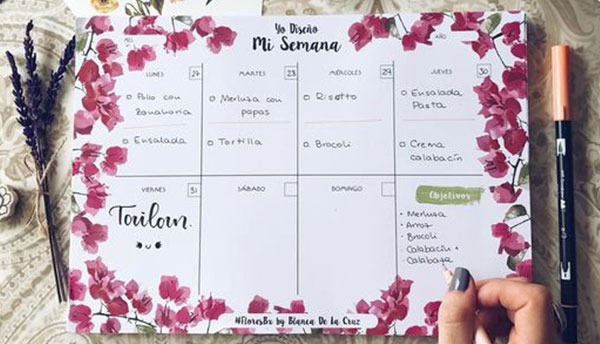 Yo Diseño
Mi Semana
AÑO
LUNES 27
MARTES 28
MIÉRCOLES 29
JUEVES 30
Pollo con
zanahoria
Merluza con
papas
Risotto
Ensalada
Pasta
Ensalada
Tortilla
Brocoli
Crema
calabacín
VIERNES 31
SÁBADO
DOMINGO
Objetivos
· Merluza
· Arroz
· Brocoli
· Calabacín
· Calabaza
#FloresBx by Blanca De La Cruz